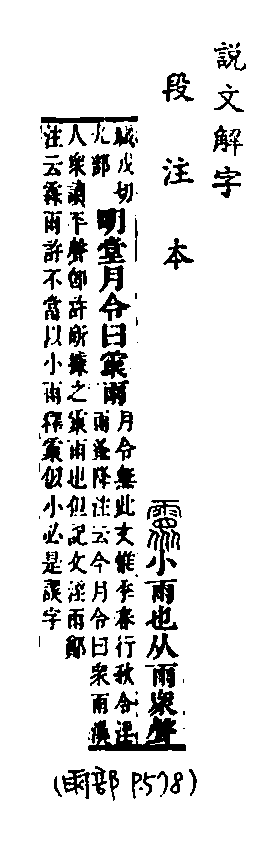 說文解字
段注本
小雨也从雨眾聲
職戎切
九部
明堂月令曰䨦雨
月令無此文惟季春行秋令淫
雨蚤降注云今月令曰眾雨漢
人眾讀平聲卽許所據之䨦雨也但記文淫雨鄭
注云霖雨許不當以小雨釋䨦似小必是誤字
(雨部 P.578)